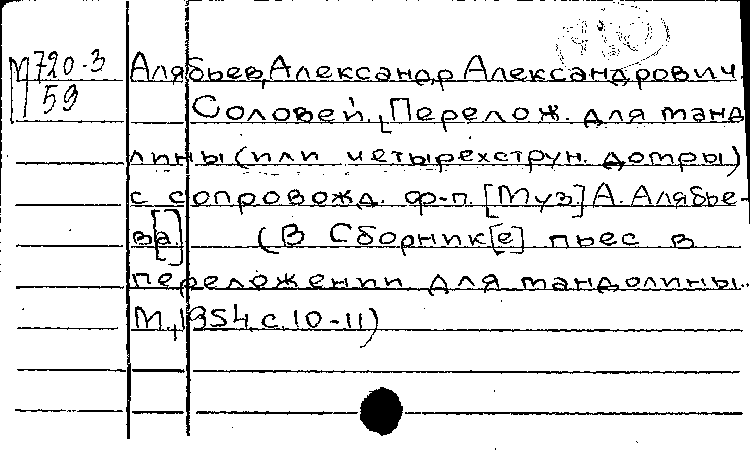 М720-3
59
Алябьев, Александр Александрович.
Соловей. [Перелож. для манд
лины (или четырехструн. домры)
с сопровожд. ф-п. [Муз] А. Алябье-
в[а.] (В Сборник[е] пьес в
переложении для мандолины.
М., 1954, с. 10-11)